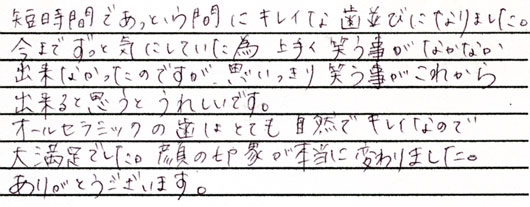 短時間であっという間にキレイな歯並びになりました。
今までずっと気にしていた為 上手く笑う事がなかなか
出来なかったのですが、思いっきり笑う事がこれから
出来ると思うとうれしいです。
オールセラミックの歯はとても自然でキレイなので
大満足でした。顔の印象が本当に変わりました。
ありがとうございます。